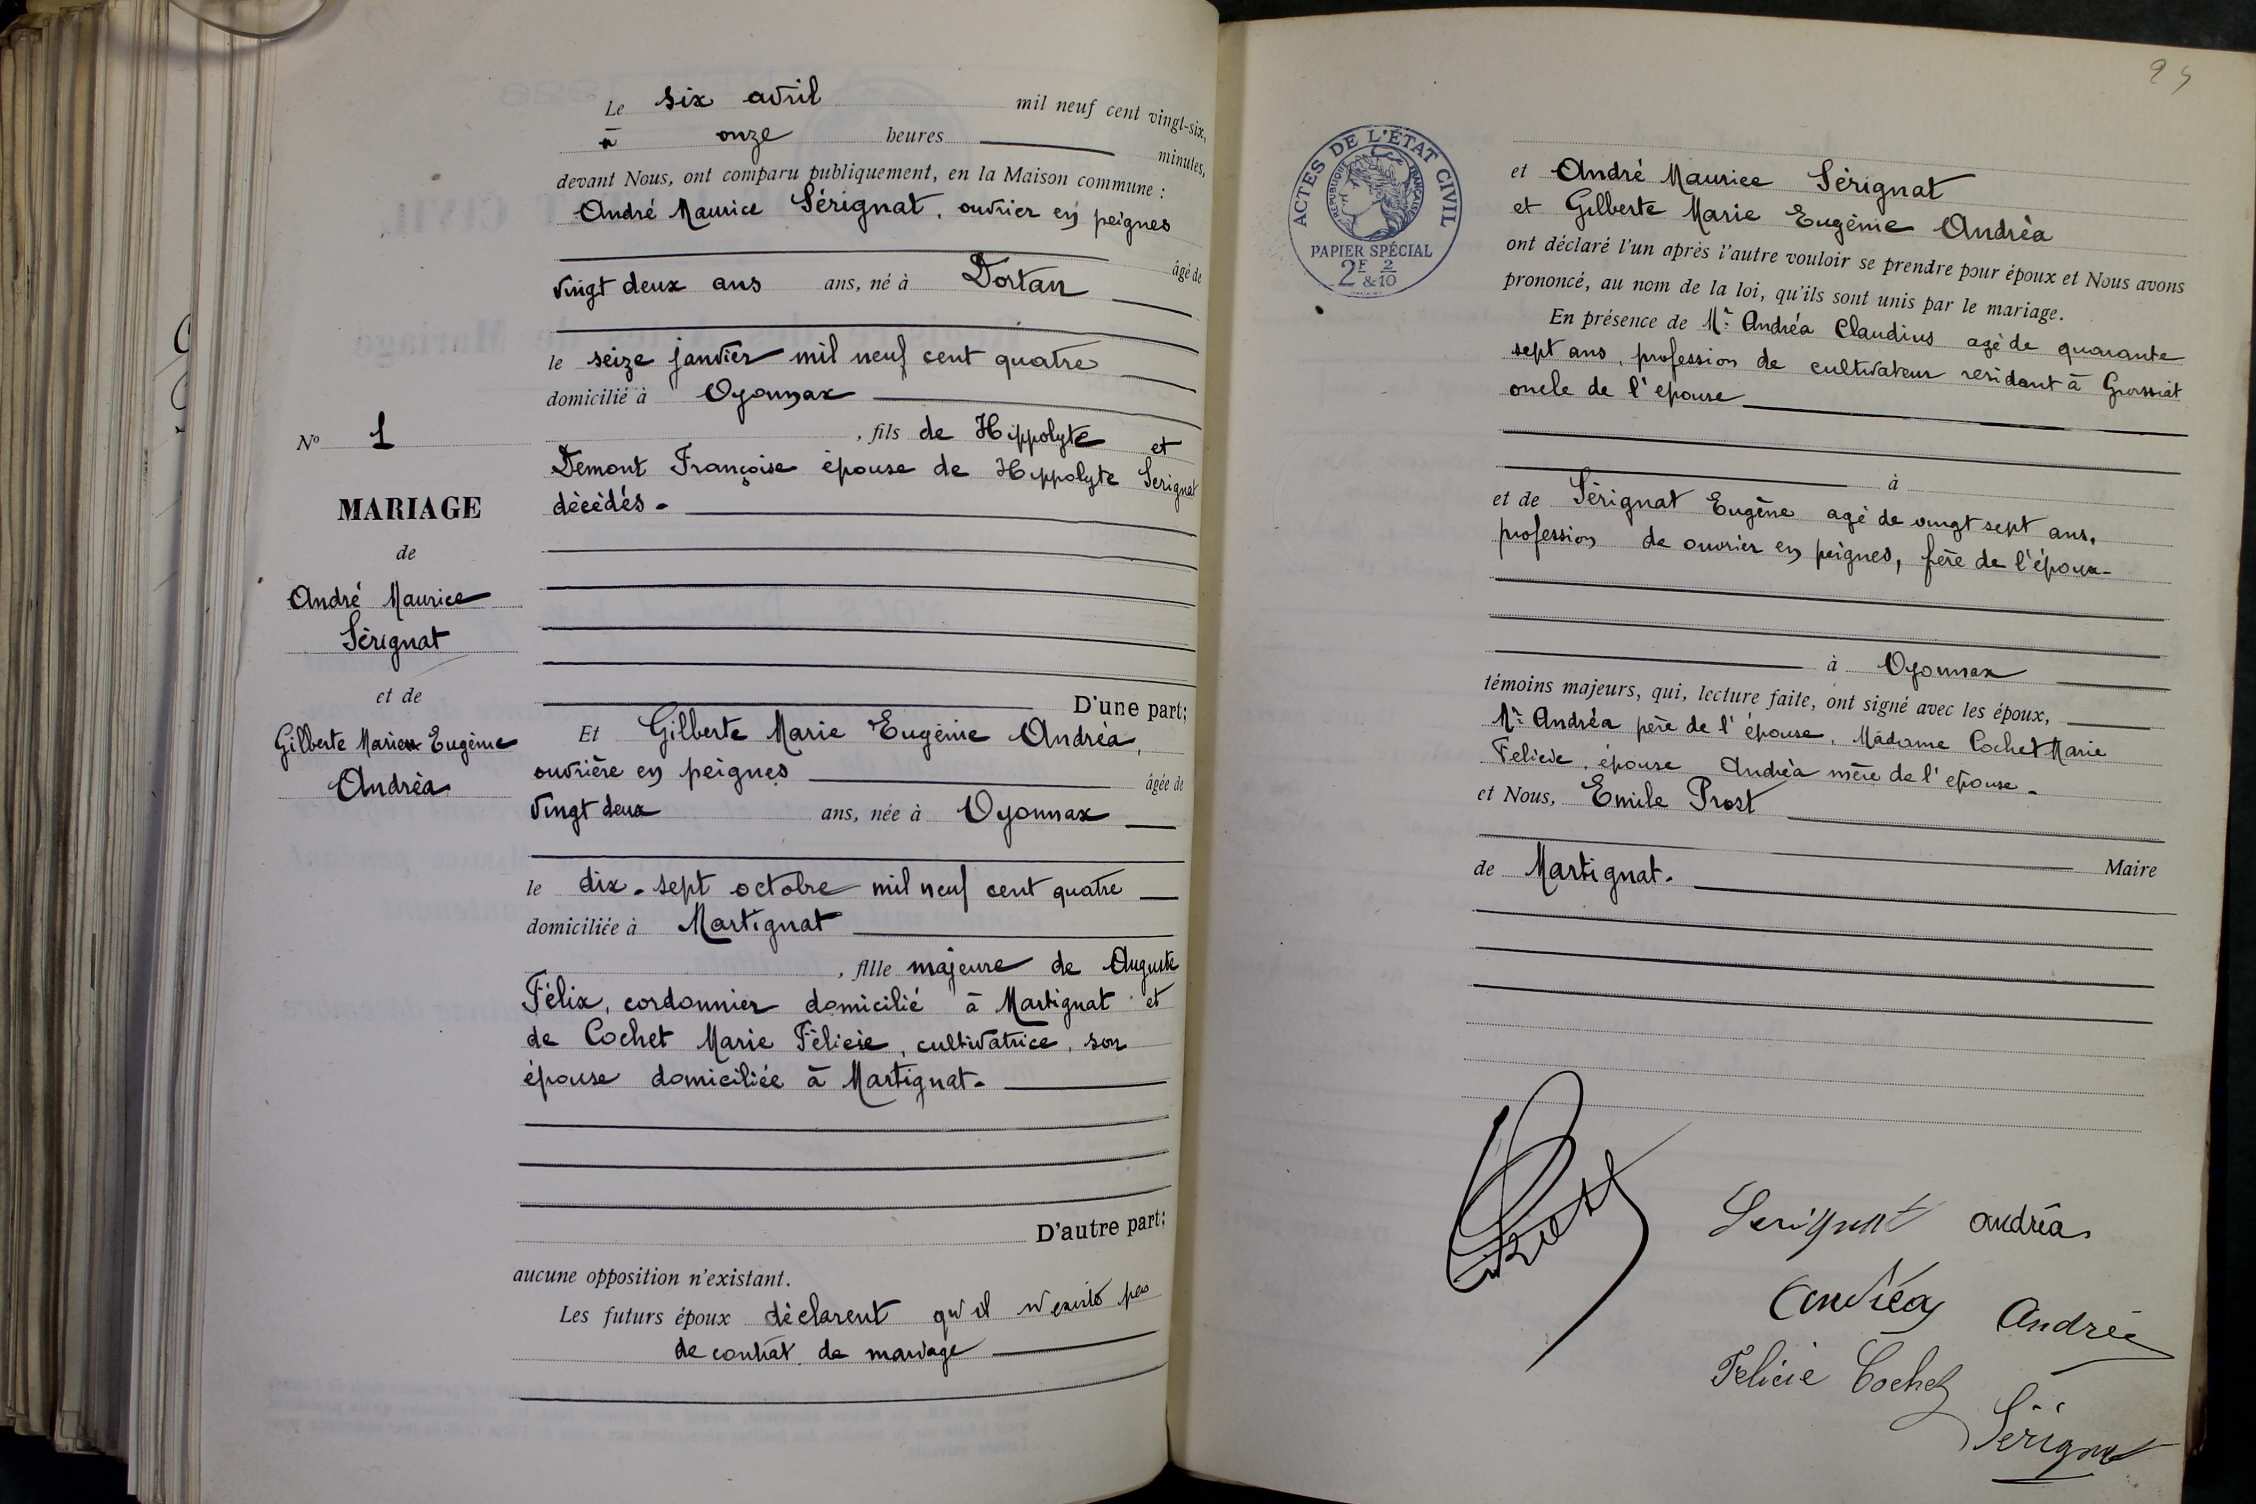 N° 1
MARIAGE
de
André Maurice
Sérignat
et de
Gilberte Marie Eugénie
Andréa
Le six avril mil neuf cent vingt-six,
à onze heures minutes,
devant Nous, ont comparu publiquement, en la Maison commune :
André Maurice Sérignat, ouvrier en peignes
âgé de
vingt deux ans ans, né à Dortan
le seize janvier mil neuf cent quatre
domicilié à Oyonnax
, fils de Hippolyte et
Demont Françoise épouse de Hippolyte Serignat
décédés.
D'une part;
Et Gilberte Marie Eugénie Andréa,
ouvrière en peignes âgée de
vingt deux ans, née à Oyonnax
le dix-sept octobre mil neuf cent quatre
domiciliée à Martignat
, fille majeure de Auguste
Félix, cordonnier domicilié à Martignat et
de Cochet Marie Félicie, cultivatrice, son
épouse domiciliée à Martignat.
D'autre part;
aucune opposition n'existant.
Les futurs époux déclarent qu'il n'existe pas
de contrat de mariage
ACTES DE L'ÉTAT CIVIL
RÉPUBLIQUE FRANÇAISE
PAPIER SPÉCIAL
2F & 2/10
et André Maurice Sérignat
et Gilberte Marie Eugénie Andréa
ont déclaré l'un après l'autre vouloir se prendre pour époux et Nous avons
prononcé, au nom de la loi, qu'ils sont unis par le mariage.
En présence de Mr Andréa Claudius agé de quarante
sept ans, profession de cultivateur residant à Groissiat
oncle de l'epouse
à
et de Sérignat Eugène agé de vingt sept ans,
profession de ouvrier en peignes, frère de l'époux
à Oyonnax
témoins majeurs, qui, lecture faite, ont signé avec les époux,
Mr Andréa père de l'épouse, Madame Cochet Marie
Felicie, épouse Andréa mère de l'epouse.
et Nous, Emile Prost
Maire
de Martignat.
Prost
Serignat andréa
Andréa Andréa
Felicie Cochet
Sérignat